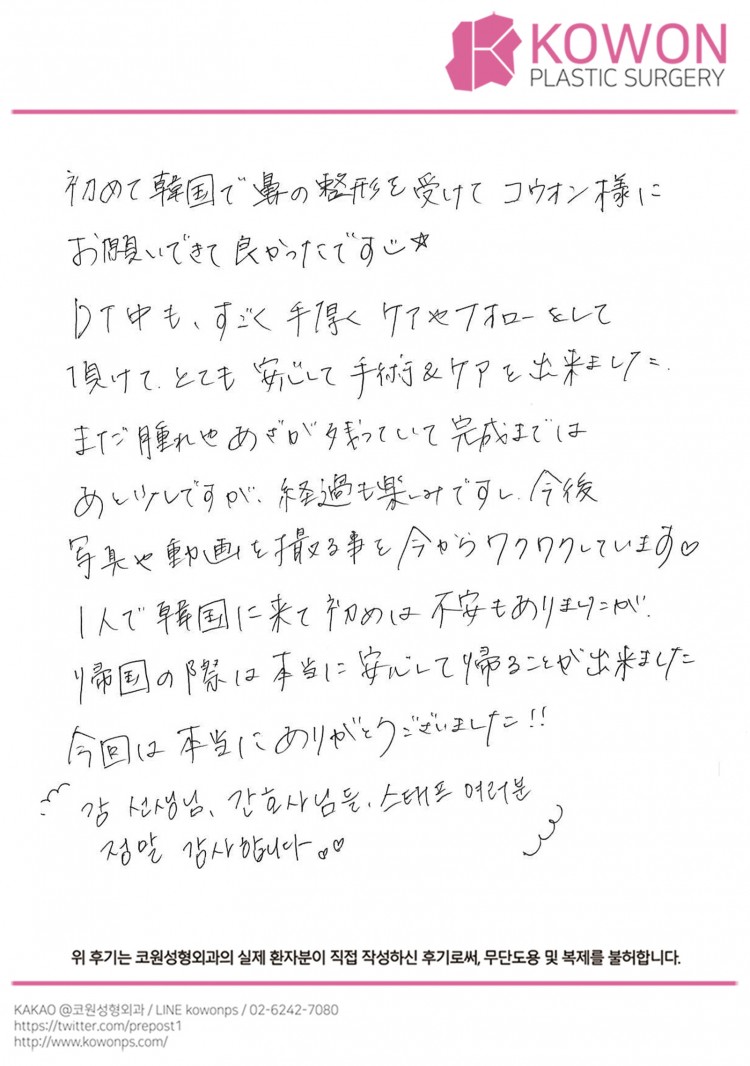 KOWON
PLASTIC SURGERY
初めて韓国で鼻の整形を受けて コウオン様に
お願いできて良かったです☺☆
DT中も、すごく手厚く ケアやフォローをして
頂けて、とても 安心して 手術&ケアを出来ました。
まだ腫れやあざが残っていて完成までは
あと少しですが、経過も楽しみですし、今後
写真や動画を撮る事を今からワクワクしています♡
1人で韓国に来て初めは不安もありましたが、
帰国の際は本当に安心して帰ることが出来ました
今回は本当にありがとうございました!!
강 선생님, 간호사님들, 스태프 여러분
정말 감사합니다.♡♡
위 후기는 코원성형외과의 실제 환자분이 직접 작성하신 후기로써, 무단도용 및 복제를 불허합니다.
KAKAO @코원성형외과 / LINE kowonps / 02-6242-7080
https://twitter.com/prepost1
http://www.kowonps.com/